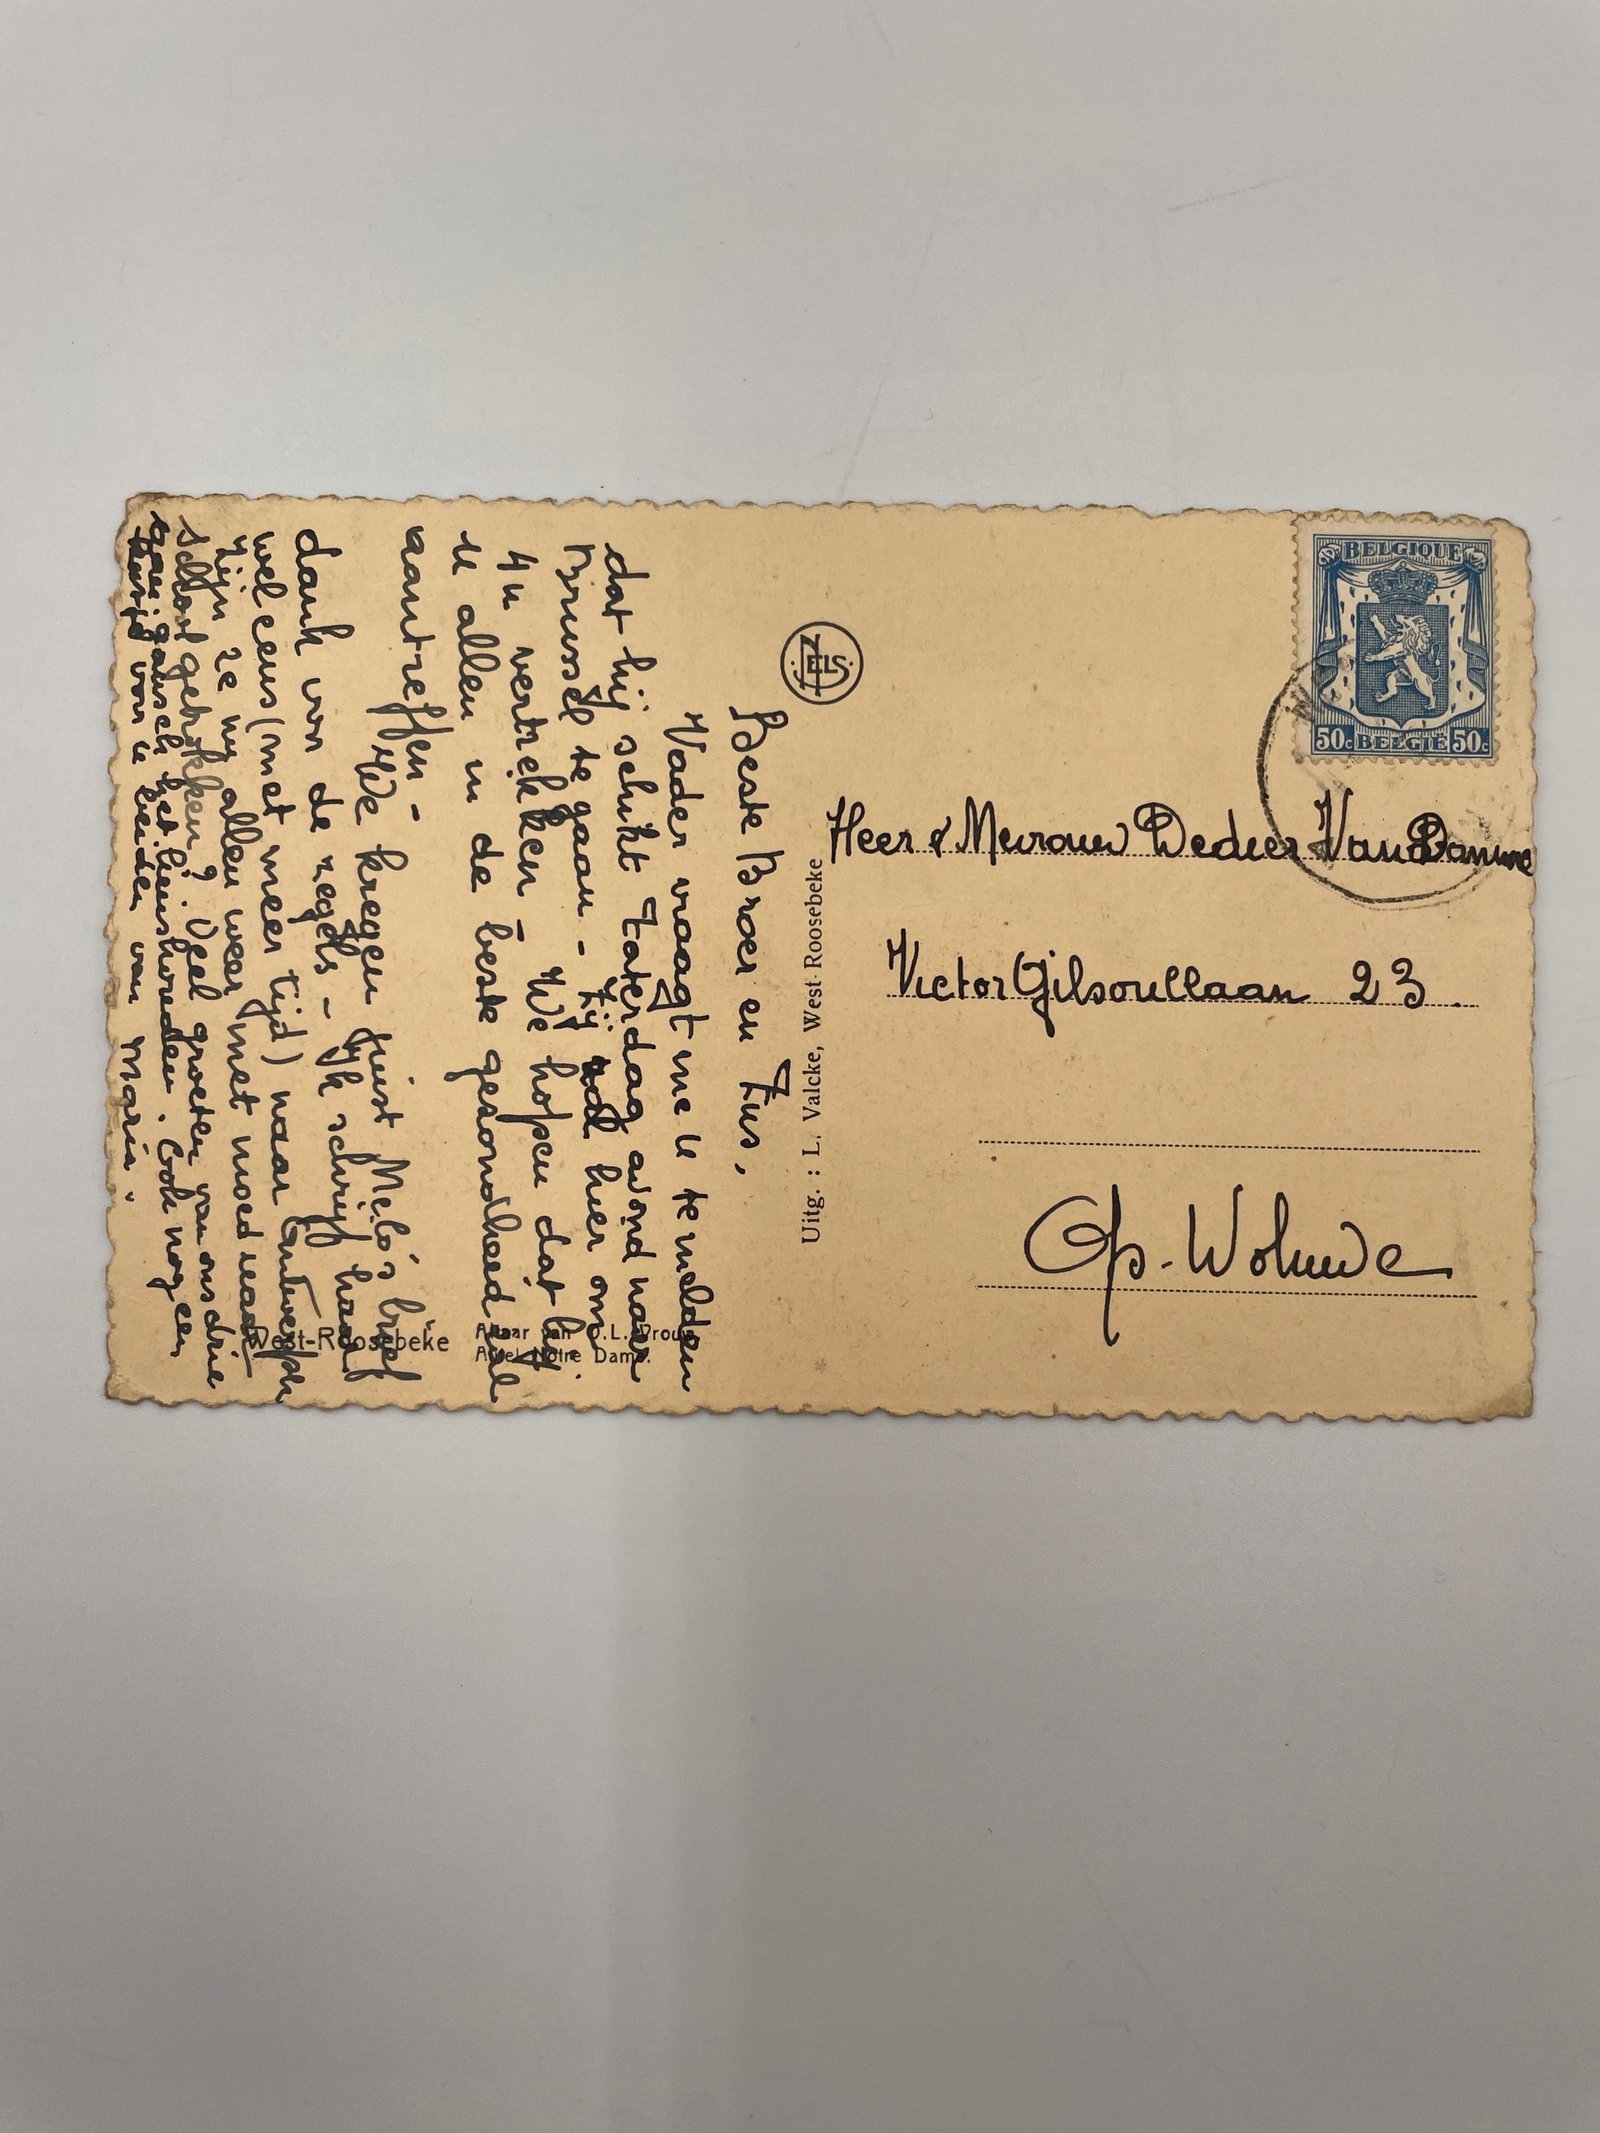 Beste Broer en Zus,
Vader vraagt me u te melden
dat hij schikt Zaterdag avond naar
Brussel te gaan - Zij zal hier om
4 u vertrekken - We hopen dat hij
u allen in de beste gezondheid zal
aantreffen -
We kregen juist Melo's brief
dank voor de zegels - Ik schrijf haar
wel eens (met meer tijd) naar Antwerpen
Zijn ze nu allen weer met moed naar
school getrokken? Veel groeten van ons drie
gan gansch het huishouden. Ook nog een
kusje voor u beiden van Maria.
West-Roosebeke
Altaar van O.L. Vrouw.
Autel Notre Dame.
Uitg. : L. Valcke, West-Roosebeke
NELS
BELGIQUE
50c BELGIË 50c
Heer & Mevrouw Dedier Van Damme
Victor Gilsoullaan 23.
Op-Woluwe